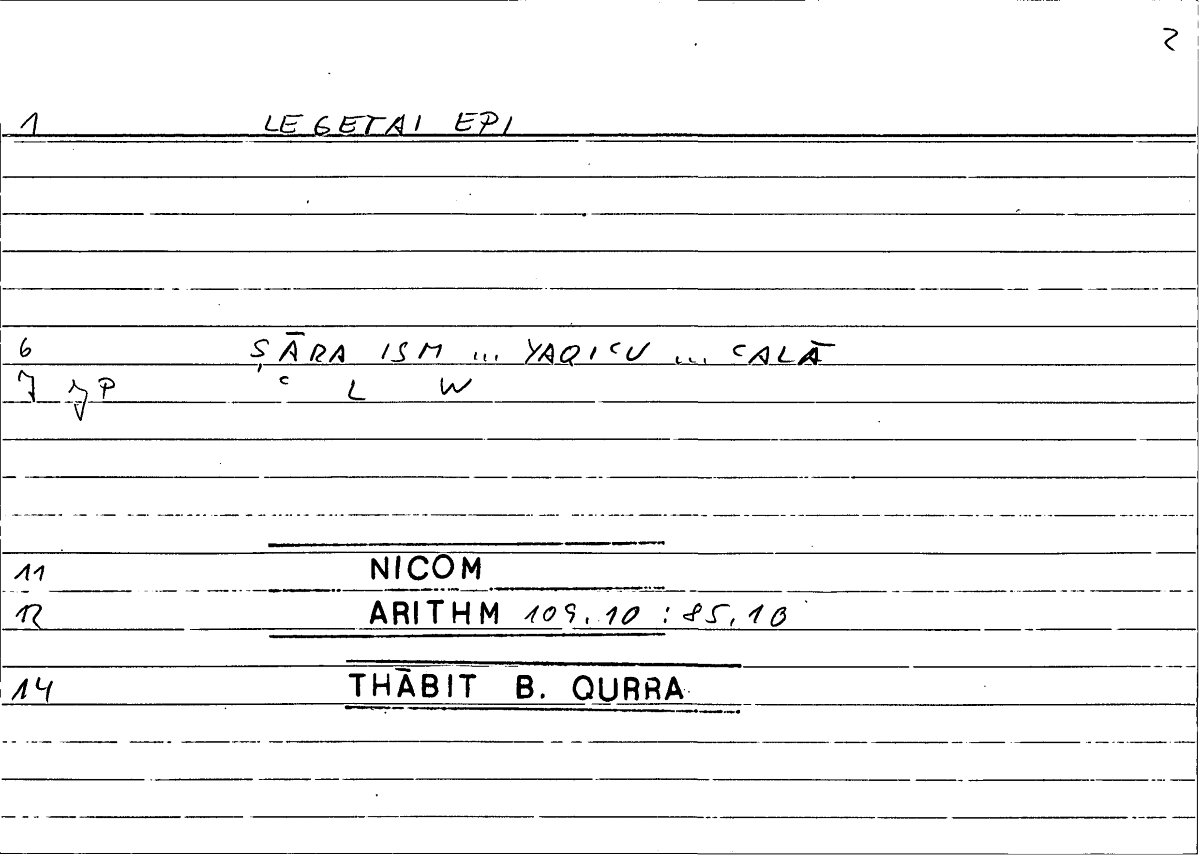 2
1 LEGETAI EPI
6 ṢĀRA ISM ... YAQIᶜU ... ᶜALĀ
7 P ᶜ L W
11 NICOM
12 ARITHM 109.10 : 85.10
14 THĀBIT B. QURRA